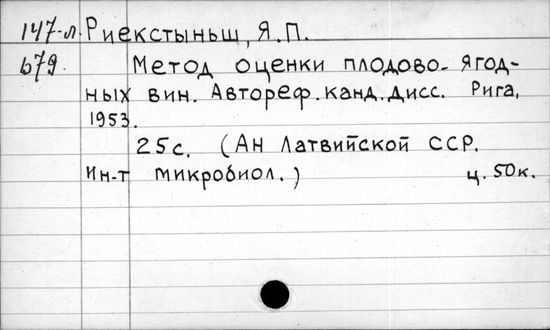 147-л. Риекстыньш, Я.П.
679. Метод оценки плодово-ягод-
ных вин. Автореф.канд.дисс. Рига,
1953.
25с. (Ан Латвийской ССР.
Ин-т микробиол.) ц.50к.